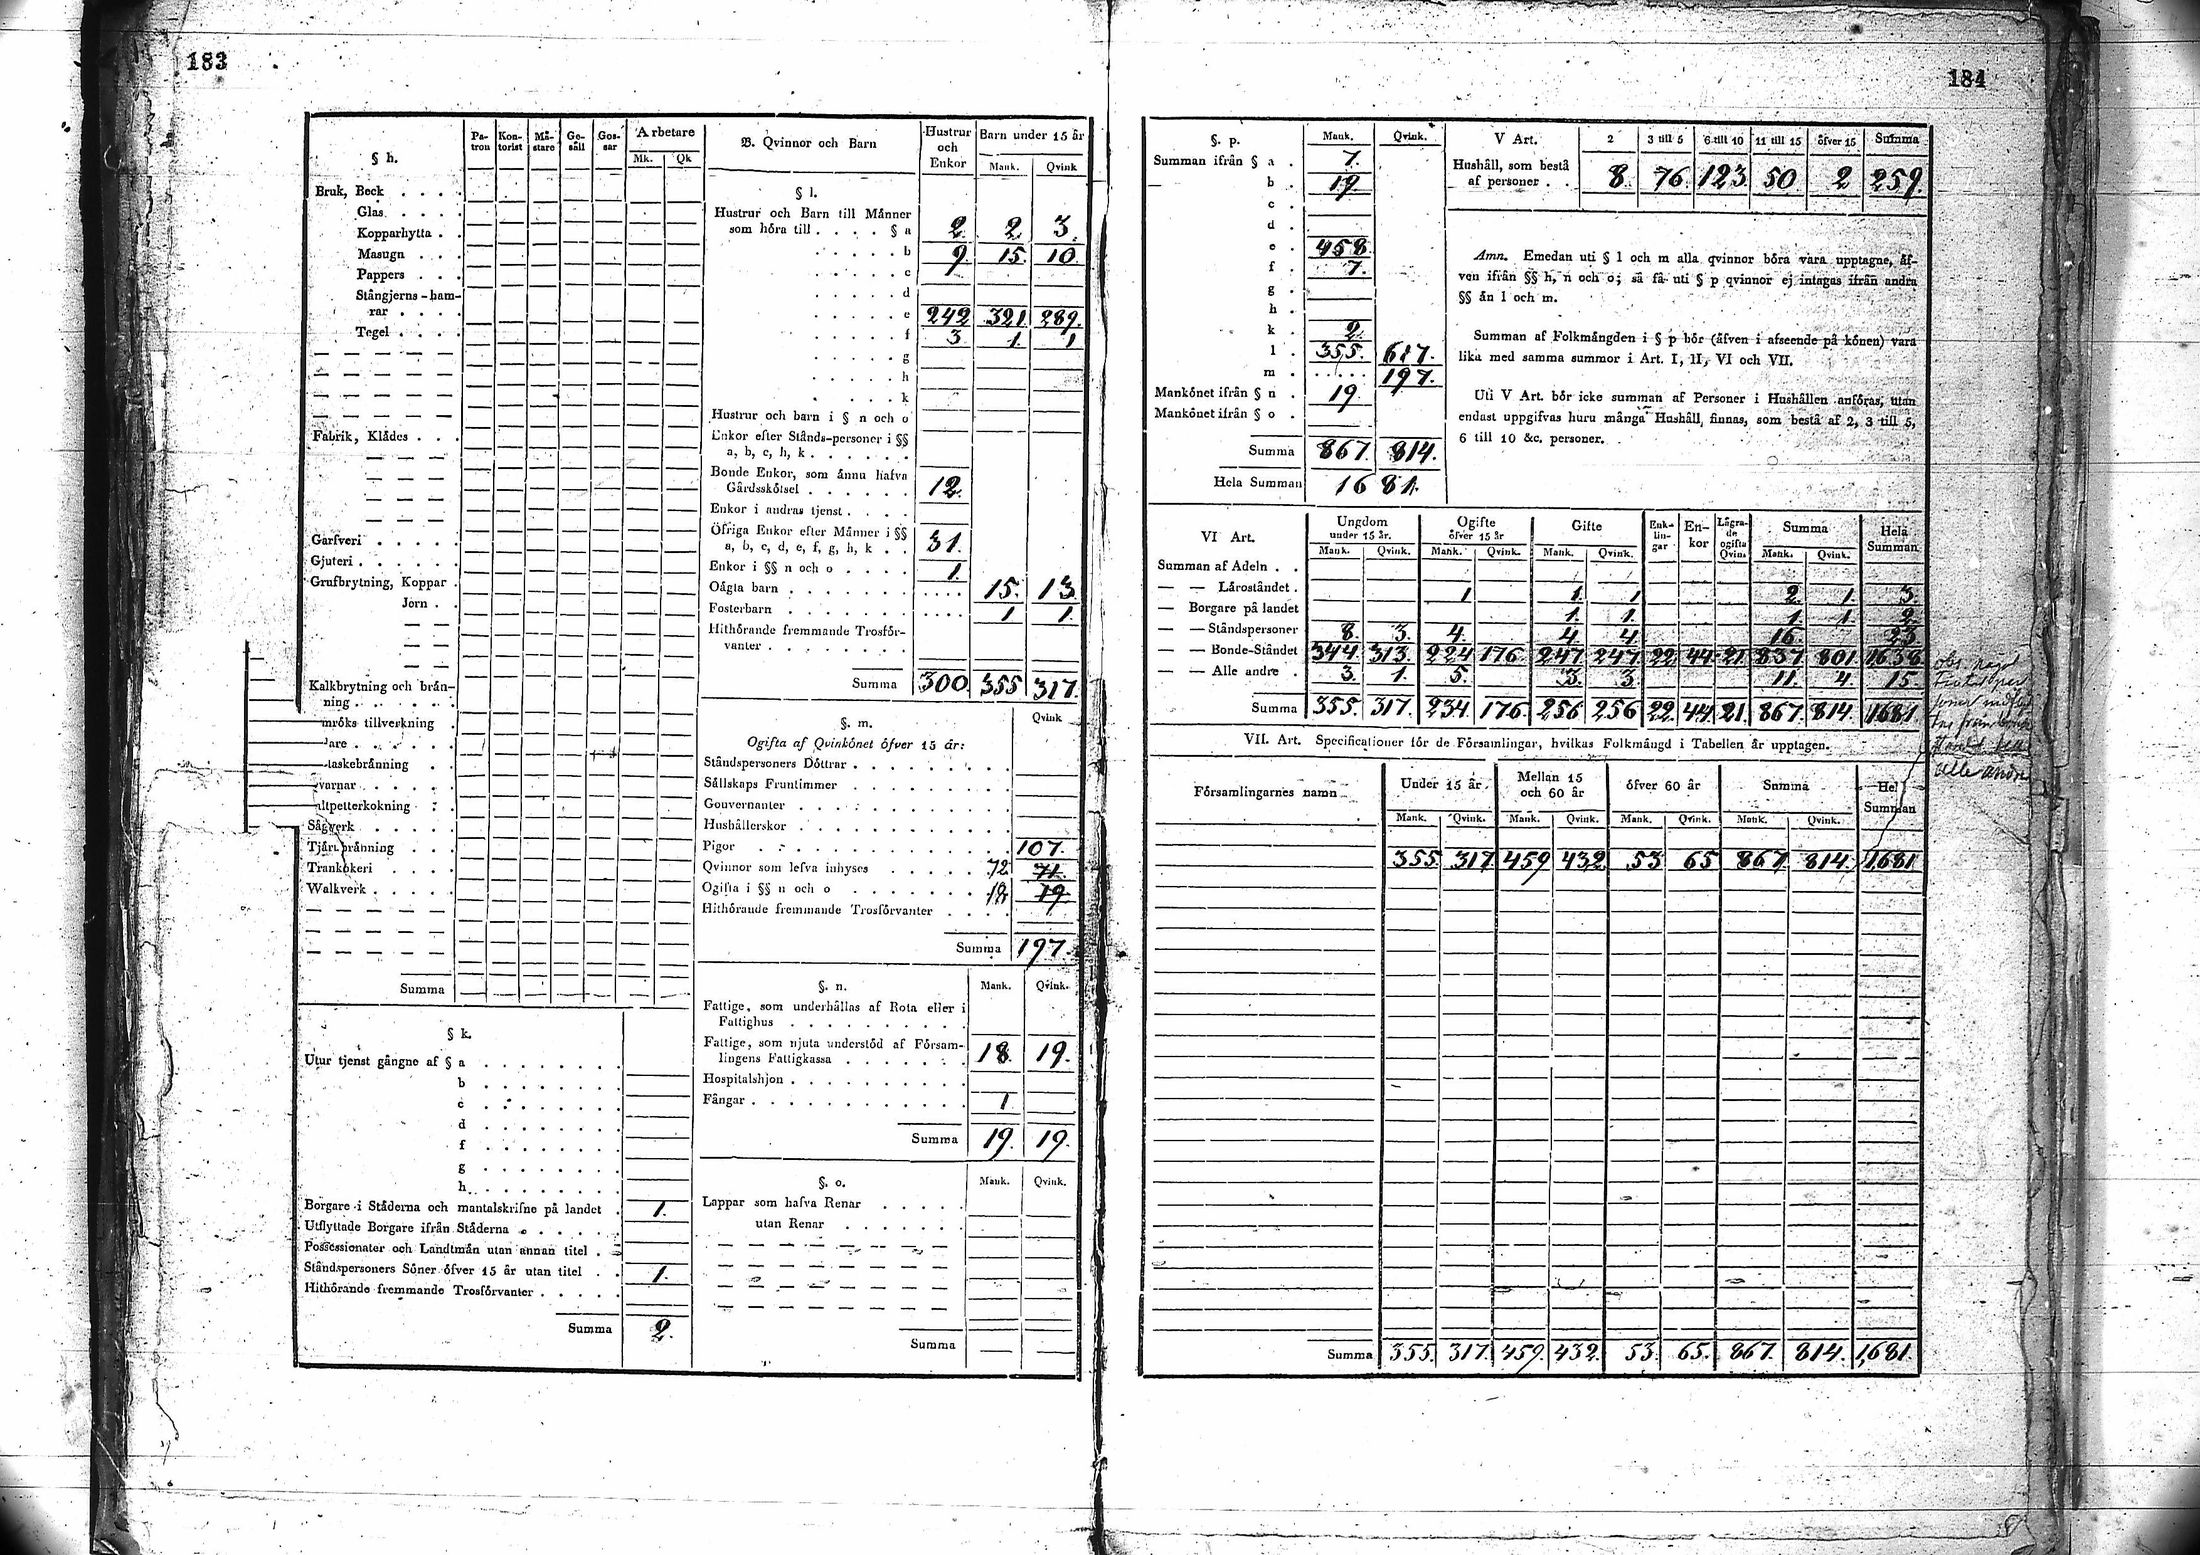 183
§ h.
Pa- tron Kon- torist Mä- stare Ge- säll Gos- sar Arbetare
Mk. Qk
Bruk, Beck . . . .
Glas . . . .
Kopparhytta . .
Masugn . . .
Pappers . . .
Stångjerns-ham-
rar . . . .
Tegel . . . .
Fabrik, Klädes . . .
Garfveri . . . . .
Gjuteri . . . . . .
Grufbrytning, Koppar .
Jern . .
Kalkbrytning och brän-
ning . . . . .
mröks tillverkning .
lare . . . . .
taskebränning . .
varnar . . . .
altpetterkokning . .
Sågverk . . . . .
Tjärubränning . . .
Trankokeri . . . .
Walkverk . . . . .
Summa
§ k.
Utur tjenst gångne af § a . . . . . . .
b . . . . . . .
c . . . . . . .
d . . . . . . .
f . . . . . . .
g . . . . . . .
h . . . . . . .
Borgare i Städerna och mantalskrifne på landet . 1.
Utflyttade Borgare ifrån Städerna . . . . .
Possessionater och Landtmän utan annan titel . .
Ståndspersoners Söner öfver 15 år utan titel . . 1.
Hithörande fremmande Trosförvanter . . . . .
Summa 2.
B. Qvinnor och Barn
Hustrur och Enkor Barn under 15 år
Mank. Qvink
§ l.
Hustrur och Barn till Männer
som höra till . . . . § a 2. 2. 3.
. . . . . b 9. 15. 10.
. . . . . c
. . . . . d
. . . . . e 242 321 289.
. . . . . f 3 1. 1
. . . . . g
. . . . . h
. . . . . k
Hustrur och barn i § n och o
Enkor efter Stånds-personer i §§
a, b, c, h, k . . . . . .
Bonde Enkor, som ännu hafva
Gårdsskötsel . . . . . . 12.
Enkor i andras tjenst . . . .
Öfriga Enkor efter Männer i §§
a, b, c, d, e, f, g, h, k . . 31.
Enkor i §§ n och o . . . . 1.
Oägta barn . . . . . . . . . . . 15. 13
Fosterbarn . . . . . . . . . . . 1 1.
Hithörande fremmande Trosför-
vanter . . . . . . . .
Summa 300. 355 317.
§. m.
Qvink
Ogifta af Qvinkönet öfver 15 år:
Ståndspersoners Döttrar . . . . . . . . .
Sällskaps Fruntimmer . . . . . . . . .
Gouvernanter . . . . . . . . . . .
Hushållerskor . . . . . . . . . . .
Pigor . . . . . . . . . . . . 107.
Qvinnor som lefva inhyses . . . . . . 72 71.
Ogifta i §§ n och o . . . . . . . 18 19.
Hithörande fremmande Trosförvanter . . . .
Summa 197.
§. n. Mank. Qvink.
Fattige, som underhållas af Rota eller i
Fattighus . . . . . . . . . .
Fattige, som njuta understöd af Försam-
lingens Fattigkassa . . . . . . . 18. 19.
Hospitalshjon . . . . . . . . . .
Fångar . . . . . . . . . . . . 1
Summa 19. 19.
§. o. Mank. Qvink.
Lappar som hafva Renar . . . . .
utan Renar . . . . . .
Summa
184
§. p. Mank. Qvink.
Summan ifrån § a . 7.
b . 19.
c .
d .
e . 458
f . 7.
g .
h .
k . 2.
l . 355. 617.
m . . . . . . 197.
Mankönet ifrån § n . 19.
Mankönet ifrån § o .
Summa 867. 814.
Hela Summan 1681.
V Art. 2 3 till 5 6 till 10 11 till 15 öfver 15 Summa
Hushåll, som bestå
af personer . . 8. 76. 123. 50 2 259.
Amn. Emedan uti § l och m alla qvinnor böra vara upptagne, äf-
ven ifrån §§ h, n och o; så få uti § p qvinnor ej intagas ifrån andra
§§ än l och m.
Summan af Folkmängden i § p bör (äfven i afseende på könen) vara
lika med samma summor i Art. I, II, VI och VII.
Uti V Art. bör icke summan af Personer i Hushållen anföras, utan
endast uppgifvas huru många Hushåll, finnas, som bestå af 2, 3 till 5,
6 till 10 &c. personer.
VI Art.
Ungdom under 15 år. Ogifte öfver 15 år Gifte Enk- lin- gar En- kor Lägra- de ogifta Qvin. Summa Hela Summan
Mank. Qvink. Mank. Qvink. Mank. Qvink. Mank. Qvink.
Summan af Adeln . .
— — Läroståndet . 1 1. 1 2. 1. 3.
— Borgare på landet 1. 1. 1 1 2.
— — Ståndspersoner 8. 3. 4. 4. 4. 16. 23
— — Bonde-Ståndet 344. 313. 224 176. 247. 247. 22. 44. 21. 837. 801. 1638
— — Alle andre . 3. 1. 5. 3. 3. 11. 4. 15.
Summa 355. 317. 234. 176. 256 256 22. 44 21. 867. 814. 1681
alle andre
VII. Art. Specificationer för de Församlingar, hvilkas Folkmängd i Tabellen är upptagen.
Församlingarnes namn
Under 15 år. Mellan 15 och 60 år öfver 60 år Summa Hel Summan
Mank. Qvink. Mank. Qvink. Mank. Qvink. Mank. Qvink.
355. 317 459 432 53 65 867. 814. 1,681
Summa 355. 317. 459. 432. 53. 65. 867. 814. 1,681.